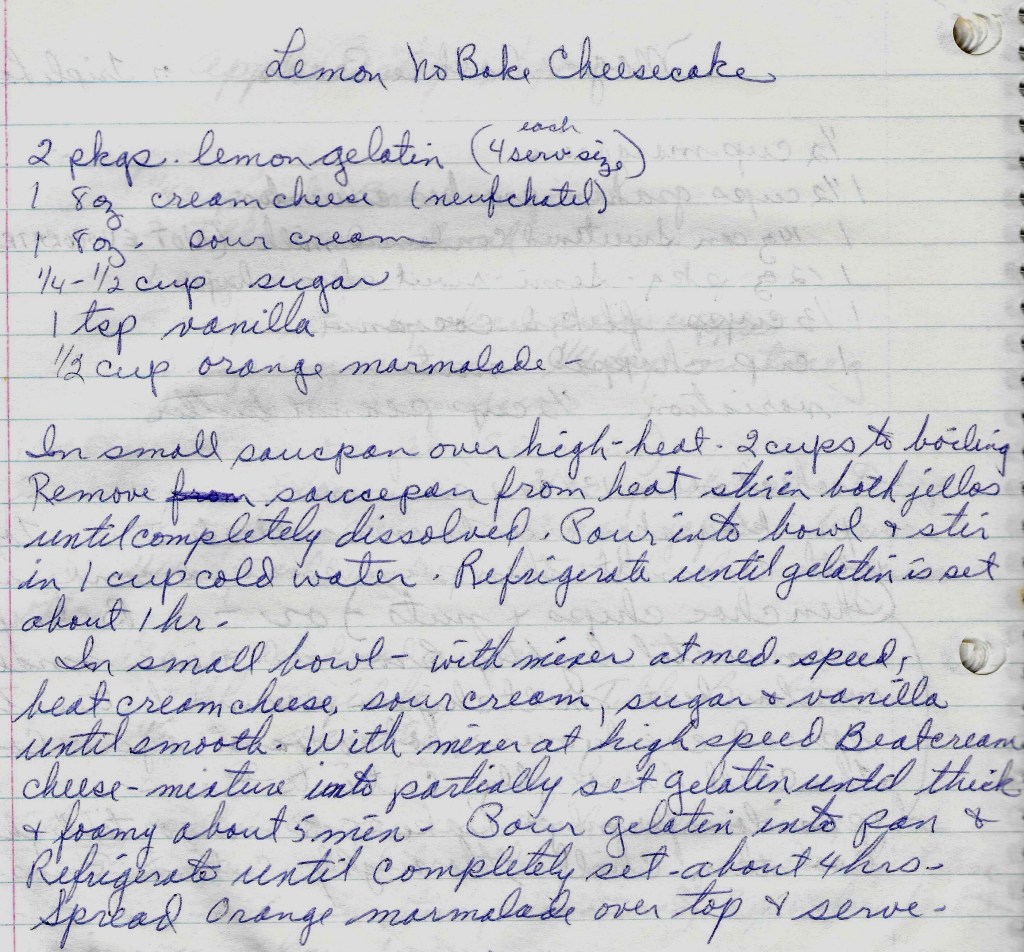 Lemon No Bake Cheesecake
2 pkgs. lemon gelatin (4 serv size) each
1 8oz creamcheese (neufchatel)
1 8oz. sour cream
1/4-1/2 cup sugar
1 tsp vanilla
1/2 cup orange marmalade -
In small saucpan over high-heat - 2 cups to boiling
Remove from saucepan from heat stir in both jellos
until completely dissolved. Pour into bowl & stir
in 1 cup cold water. Refrigerate until gelatin is set
about 1 hr -
In small bowl - with mixer at med. speed,
beat creamcheese, sour cream, sugar & vanilla
until smooth. With mixer at high speed Beat cream
cheese-mixture into partially set gelatin until thick
& foamy about 5 min - Pour gelatin into pan &
Refrigerate until completely set - about 4 hrs -
Spread Orange marmalade over top & serve -